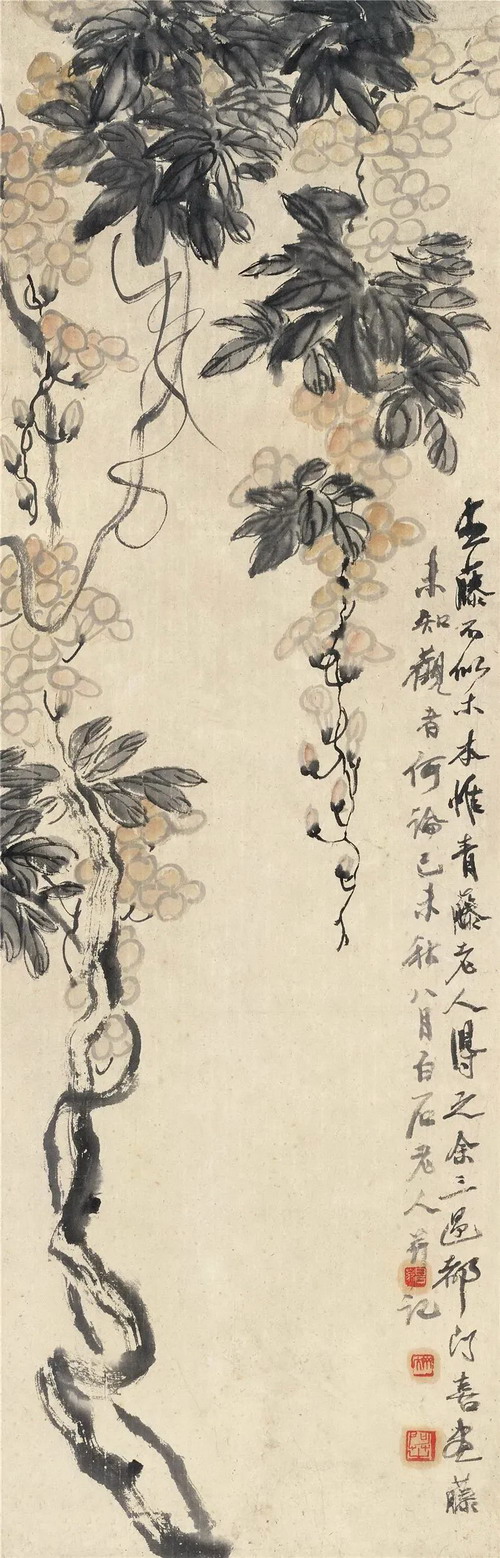 画藤不似木本惟青藤老人得之余三过都门喜画藤
未知觀者何論己未秋八月白石老人并記